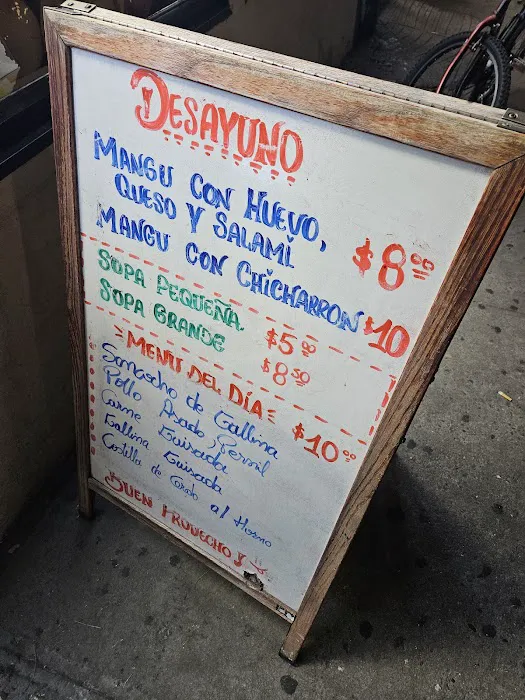 DESAYUNO
MANGU CON HUEVO,
QUESO Y SALAMI
$8.00
MANGU CON CHICHARRON $10
SOPA PEQUEÑA $5.00
SOPA GRANDE $8.50
MENU DEL DÍA $10.00
Sancocho de Gallina
Pollo Asado Pernil
Carne Guisada
Gallina Guisada
Costilla de Cerdo al Horno
BUEN PROVECHO